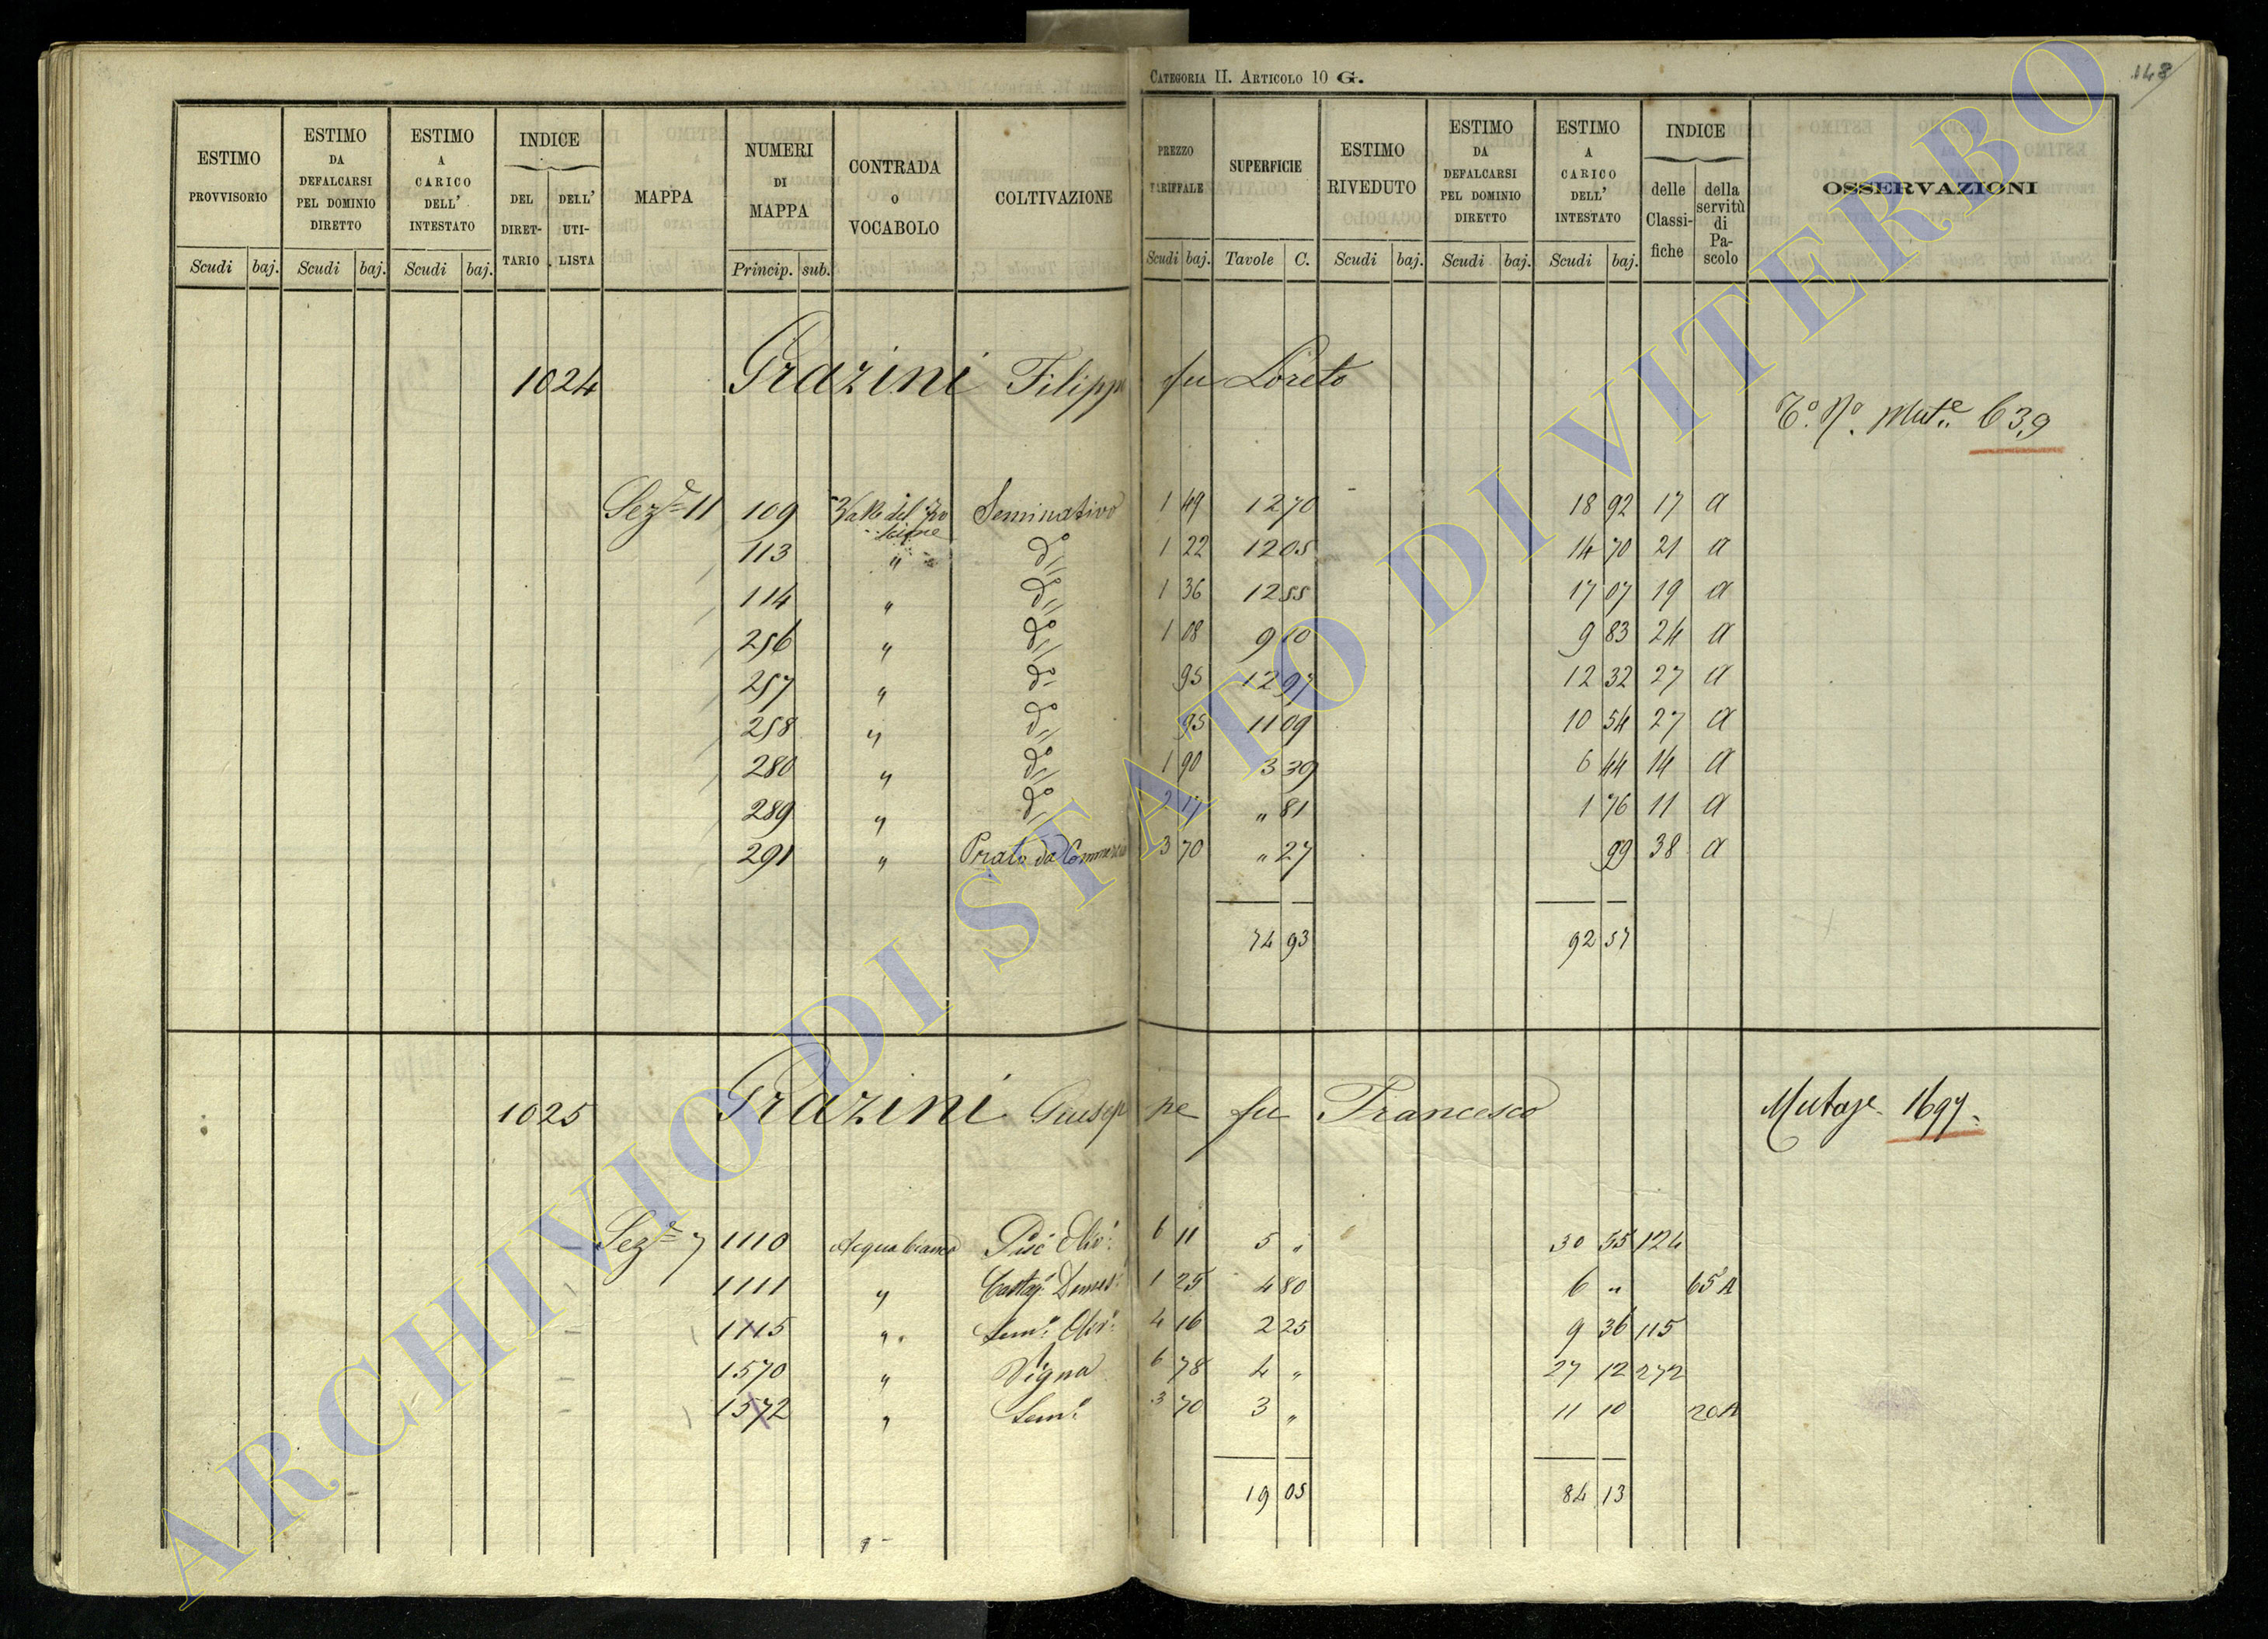 CATEGORIA II. ARTICOLO 10 G. 148
ESTIMO PROVVISORIO | ESTIMO DA DEFALCARSI PEL DOMINIO DIRETTO | ESTIMO A CARICO DELL' INTESTATO | INDICE DEL DIRET-TARIO | DELL' UTI-LISTA | MAPPA | NUMERI DI MAPPA | CONTRADA o VOCABOLO | COLTIVAZIONE | PREZZO TARIFFALE | SUPERFICIE | ESTIMO RIVEDUTO | ESTIMO DA DEFALCARSI PEL DOMINIO DIRETTO | ESTIMO A CARICO DELL' INTESTATO | INDICE delle Classi-fiche | della servitù di Pa-scolo | OSSERVAZIONI
Scudi baj. Scudi baj. Scudi baj. Princip. sub. Scudi baj. Tavole C. Scudi baj. Scudi baj. Scudi baj.
1024 Grazini Filippo fu Loreto
T.o N.o Mut.e 639
Seze 11 109 Valle del Seminativo 1 49 12 70 18 92 17 a
113 " d° 1 22 12 05 14 70 21 a
114 " d° 1 36 12 55 17 07 19 a
256 " d° 1 08 9 10 9 83 24 a
257 " d° 95 12 97 12 32 27 a
258 " d° 95 11 09 10 54 27 a
280 " d° 1 90 3 39 6 44 14 a
289 " d° 2 17 " 81 1 76 11 a
291 " Prato da Commercio 3 70 " 27 99 38 a
74 93 92 57
1025 Grazini Giuseppe fu Francesco Mutaze 1697.
Seze 7 1110 Acquabianca Olivo 6 11 5 " 30 55 124
1111 " Castag. Domes. 1 25 4 80 6 " 65 A
1115 " Sem. Olivo 4 16 2 25 9 36 115
1570 " Vigna 6 78 4 " 27 12 272
1572 " Sem. 3 70 3 " 11 10 20 A
19 05 84 13
ARCHIVIO DI STATO DI VITERBO